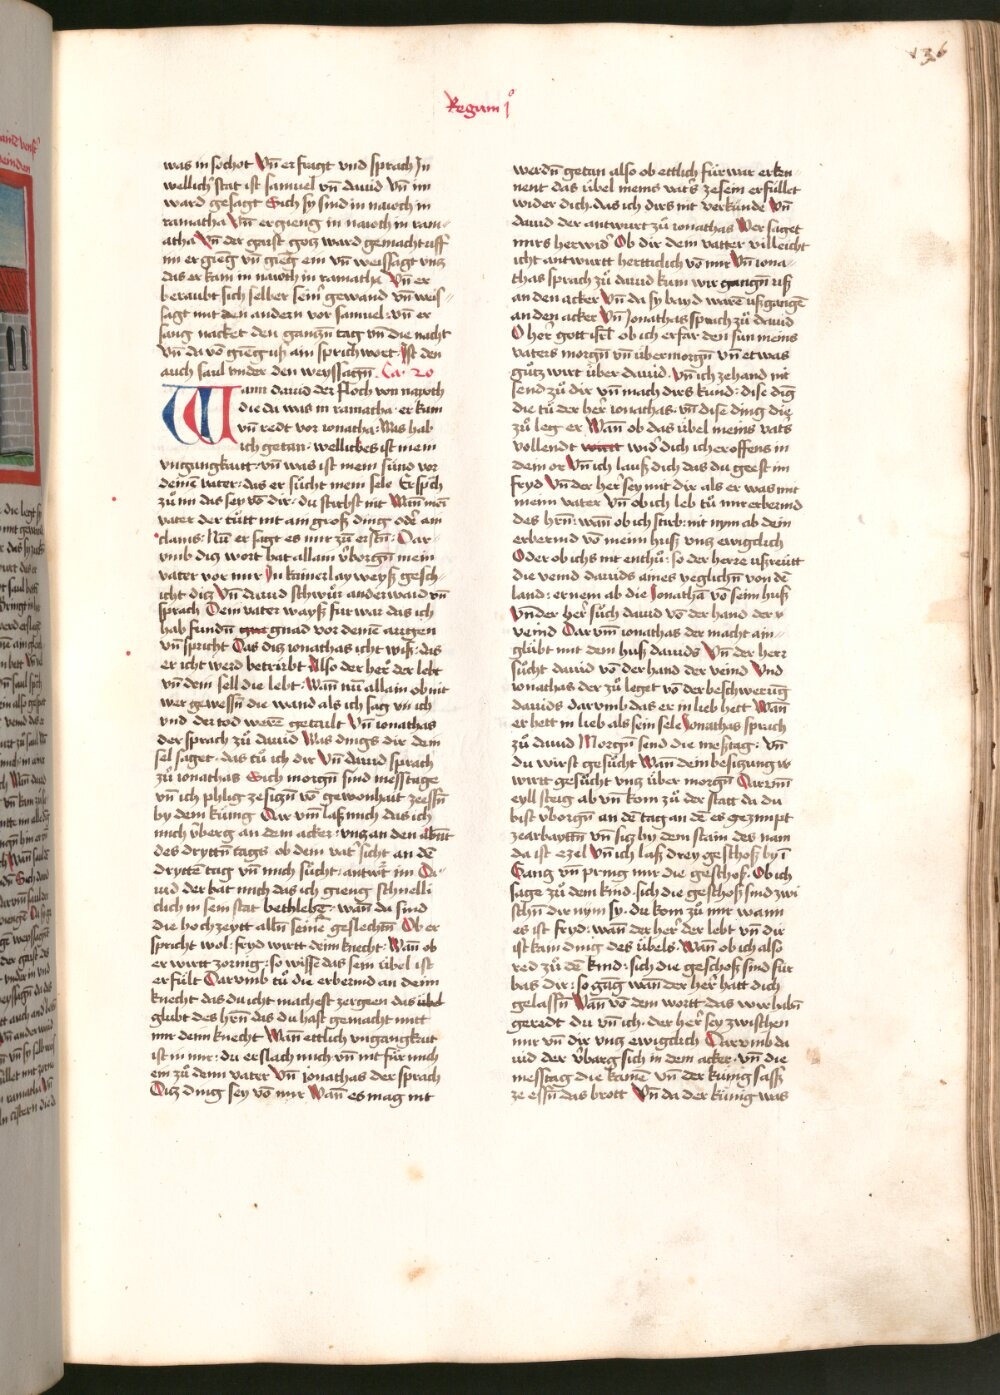 136
Regum j°
was in sochot Vn̄ er fragt vnd sprach Jn
wellich̾ stat ist samuel vn̄ dauid Vn̄ im
ward gesagt Sich sy sind in naioth in
ramatha Vn̄ er gieng in naioth in ram
atha Vn̄ der gaist gotz ward gemacht uff
im er gieḡ vn̄ gieḡ ein vn̄ weissagt vntz
das er kam in naioth in ramatha Vn̄ er
beraubt sich selber sein̾ gewand vn̄ weis
sagt mit den andern vor samuel vn̄ er
sang nacket den gantzn̄ tag vn̄ die nacht
vn̄ da vō gieḡ uß ain sprichwort Jst den
auch saul vnder den weyssagn̄ . Ca. 20
Wann dauid der floch von nayoth
die da was in ramatha er kam
vn̄ redt vor ionatha Was hab
ich getan wellihes ist mein
vngangkait vn̄ was ist mein sünd vor
deinē vater das er sücht mein sele Er sp̄ch
zü im das sey vō dir du stirbst nit Wan̄ mei
vater der tütt nit ain groß ding ode̾ ain
clains Nun er sagt es mir zü erstn̄ Dar
vmb ditz wort hat allain v̾borgn̄ mein
vater vor mir Jn kainerlay weyß gesch
icht ditz Vn̄ dauid schwür anderwaid vn̄
sprach Dein vater wayß für war das ich
hab fundn̄ gnad vor deinē augen
vn̄ spricht Das ditz ionathas icht wiß das
er icht werd betrübt Also der her̾ der lebt
vn̄ dein sell die lebt Wan̄ nu allain ob nit
wer gewessn̄ die wand als ich sag vn̄ ich
vnd der tod werē getailt Vn̄ ionathas
der sprach zü dauid Was dings dir dein
sel saget das tü ich dir Vn̄ dauid sprach
zü ionathas Sich morgn̄ sind messtage
vn̄ ich phlig ze sitzn̄ vō gewonhait ze essn̄
by dem künig Dar vm̄ laß mich das ich
mich v̾berg an dem acker vntz an den abn̄t
des dryttn̄ tags ob dein vat̾ sicht an dē
dryttē tag vn̄ mich sücht antwrt im Da
uid der bat mich das ich gieng schnelli
clich in sein stat bethlehē wan̄ da sind
die hochzeytt alln̄ seinē geslechtn̄ Ob er
spricht wol fryd wirtt deim knecht Wan̄ ob
er wirtt zornig so wisse das sein übel ist
erfült Darvmb tü die erbermd an deim
knecht das du icht machest zergeen das übel
glübt des hrn̄ das du hast gemacht mitt
mir deim knecht Wan̄ ettlich vngangkait
ist in mir du erslach mich vn̄ nit für mich
ein zü deim vater Vn̄ jonathas der sprach
Ditz ding sey vō mir Wan̄ es mag nit
werdn̄ getan also ob ettlich für war erken
nent das übel meins vat̾s ze sein erfüllet
wider dich das ich dirs nit verkünde Vn̄
dauid der antwurt zü ionathas Wer saget
mirs herwid̾ Ob dir dein vatter villeicht
icht antwurtt hertticlich vō mir Vn̄ iona
thas sprach zü dauid kum wir gangn̄ uß
an den acker Vn̄ da sy baid warē ußgangē
an den acker Vn̄ Jonathas sprach zü dauid
O her̾ gott isrl̄ ob ich erfar den sun meins
vaters morgn̄ vn̄ übermorgn̄ vn̄ etwas
gütz wirt über dauid Vn̄ ich zehand nit
send zü dir vn̄ mach dirs kund dise dīg
die tü der her ionathas vn̄ dise ding die
zü leg er Wan̄ ob das übel meins vat̾s
vollendt wid̾ dich ich er offens in
dein or Vn̄ ich lauß dich das du geest im
fryd Vn̄ der her̾ sey mit dir als er was mit
meim vater Vn̄ ob ich leb tü mir erbermd
des hrn̄ wan̄ ob ich stirb nit nym ab dein
erbermd vō meim huß vntz ewigclich
Oder ob ichs nit enthü so der herre ußreütt
die veind dauids aines yeglichn̄ von dē
land er nem ab die Jonathā vō seim huß
Vn̄ der her̾ such dauid vō der hand der v
veind Dar vm̄ ionathas der macht ain
glübt mit dem huß dauids Vn̄ der herr
sücht dauid vō der hand der veind Vnd
ionathas der zü leget vō der beschweruḡ
dauids darvmb das er in lieb hett Wan̄
er hett in lieb als sein sele Jonathas sprach
zü dauid Morgn̄ send die meßtag vn̄
du wirst gesücht Wan̄ dein besitzung w
wirtt gesücht vntz über morgn̄ Darvm̄
eyll steig ab vn̄ kom zü der statt da du
bist v̾borgn̄ an dē tag an dē es gezimpt
ze arbayttn̄ vn̄ sitz by dem stain des nam
da ist ezel Vn̄ ich laß drey geschoß by ī
Gang vn̄ pring mir die geschoß Ob ich
sage zü dem kind sich die geschoß sind zwi
schn̄ dir nym sy du kom zü mir wann
es ist fryd wan̄ der her̾ der lebt vn̄ dir
ist kain ding des übels Wan̄ ob ich also
red zü dē kind sich die geschoß sind für
bas dir so gāg wan̄ der her̾ hatt dich
gelassn̄ Wan̄ vō dem wortt das wir habn̄
geredt du vn̄ ich der her̾ sey zwischen
mir vn̄ dir vntz ewigclich Darvmb da
uid der v̾barg sich in dem acker vn̄ die
messtag die kamē vn̄ der künig sass
ze essn̄ das brott Vn̄ da der künig was